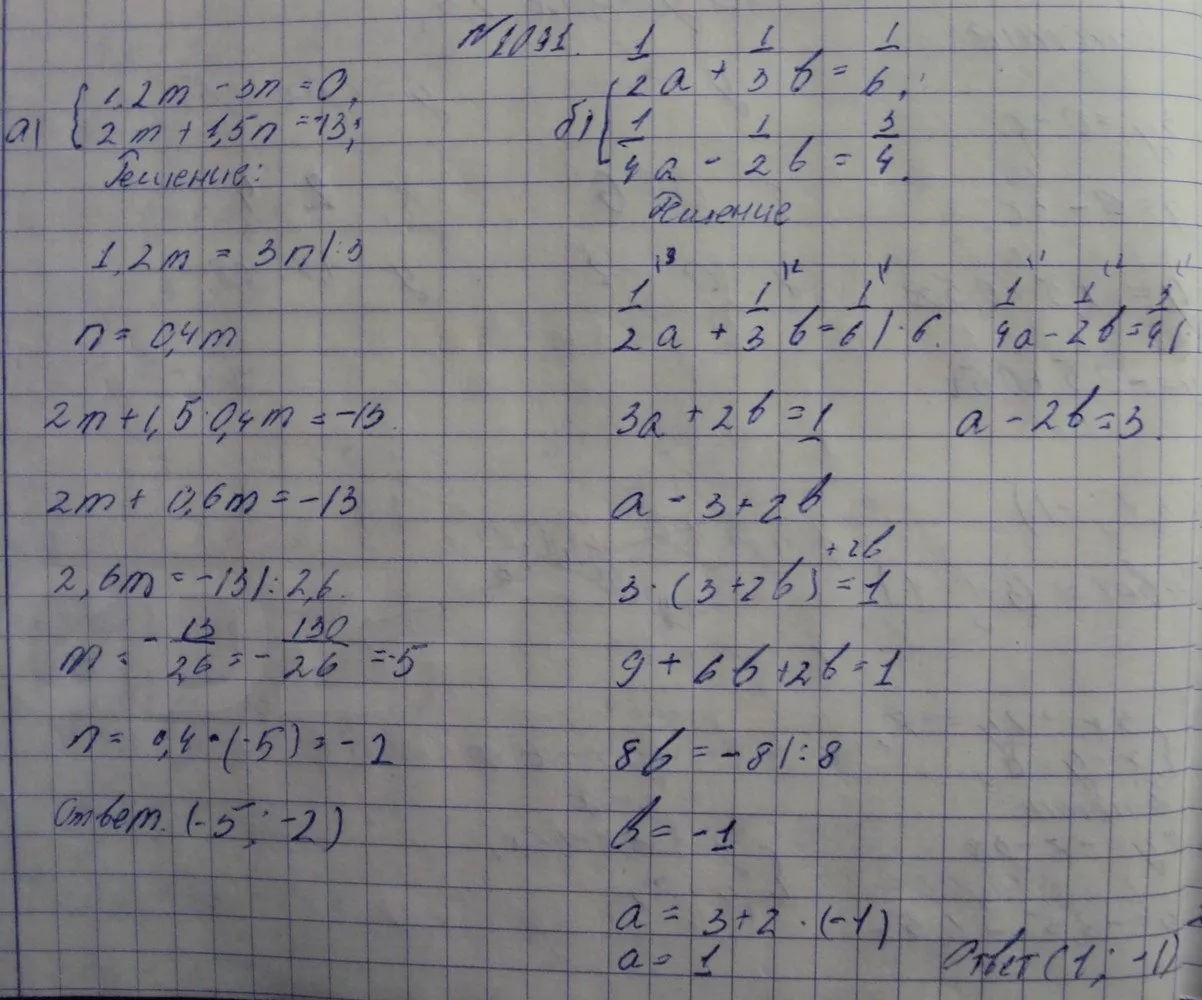 №1071.
а) { 1,2m - 3n = 0,
2m + 1,5n = -13;
Решение:
1,2m = 3n |:3
n = 0,4m
2m + 1,5·0,4m = -13.
2m + 0,6m = -13
2,6m = -13 |: 2,6.
m = - 13/2,6 = - 130/26 = -5
n = 0,4·(-5) = -2
Ответ. (-5; -2)
б) { 1/2 a + 1/3 b = 1/6,
1/4 a - 1/2 b = 3/4.
Решение
1/2 a + 1/3 b = 1/6 | · 6. 1/4 a - 1/2 b = 3/4 |
3a + 2b = 1 a - 2b = 3.
a - 3 + 2b
3·(3+2b) +2b = 1
9 + 6b + 2b = 1
8b = -8 |: 8
b = -1
a = 3 + 2·(-1)
a = 1 Ответ (1; -1)